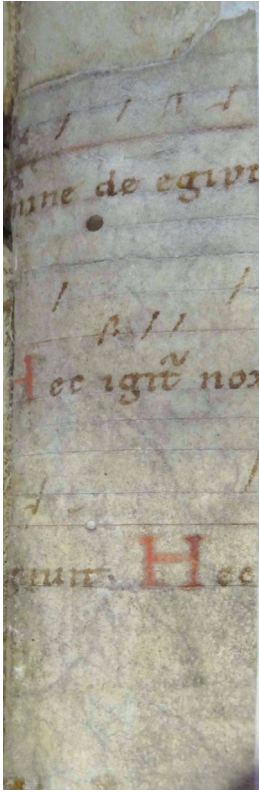 de egipt
Hec igit̃ nox
Hec